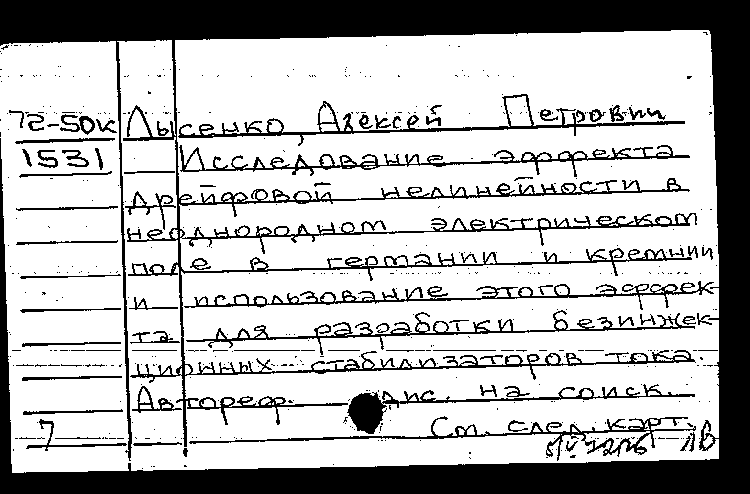 72-50к Лысенко, Алексей Петрович
1531 Исследование эффекта
дрейфовой нелинейности в
неоднородном электрическом
поле в германии и кремнии
и использование этого эффек-
та для разработки безинжек-
ционных стабилизаторов тока.
Автореф. дис. на соиск.
7 См. след. карт.